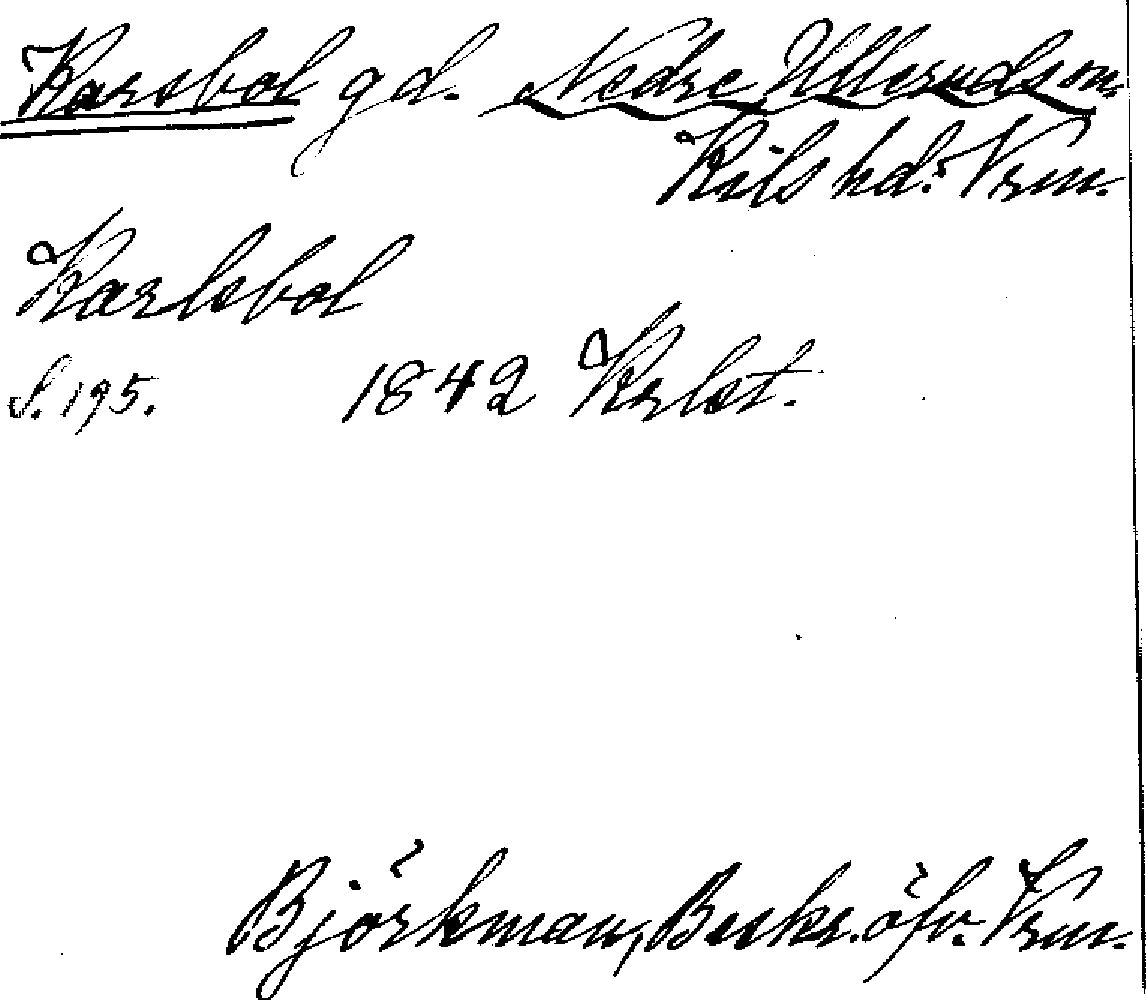 Karsbol gd. Nedre Ullerud sn.
Kils hd. Vrm.
Karlsbol
S. 195. 1842 Krlst.
Björkman, Beskr. öfv. Vrm.